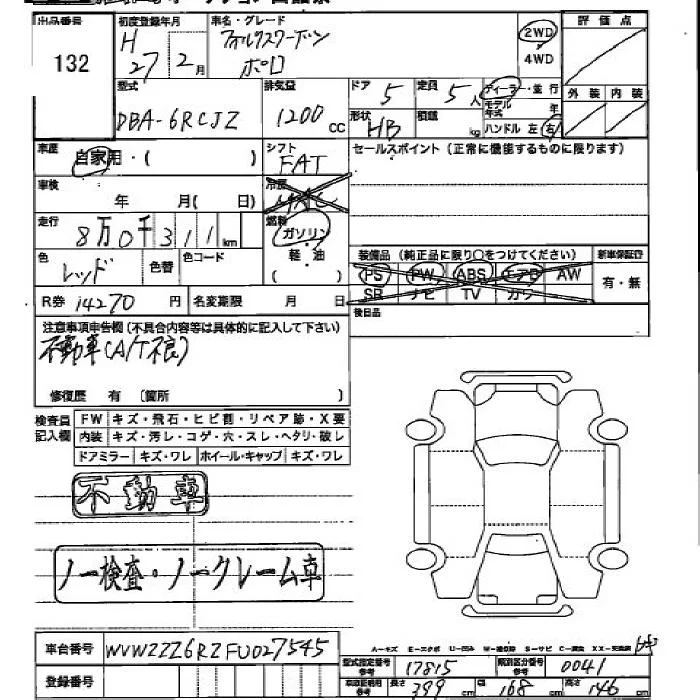 出品番号
132
初度登録年月
H27 2月
車名・グレード
フォルクスワーゲン
ポロ
2WD
4WD
評価点
外装 内装
型式
DBA-6RCJZ
排気量
1200cc
ドア 5
定員 5人
形状 HB
積載 kg
ディーラー・並行
モデル年式 年
ハンドル 左 右
車歴
自家用・( )
シフト
FAT
セールスポイント(正常に機能するものに限ります)
車検
年 月( 日)
冷房
走行
8万0千311km
燃料
ガソリン
軽油
( )
色
レッド
色替
色コード
装備品(純正品に限り○をつけてください)
PS PW ABS エアB AW
SR ナビ TV カワ
新車保証書
有・無
R券 14270円
名変期限 月 日
後日品
注意事項申告欄(不具合内容等は具体的に記入して下さい)
不動車(A/T不良)
修復歴 有(箇所 )
検査員記入欄
FW キズ・飛石・ヒビ割・リペア跡・X要
内装 キズ・汚レ・コゲ・穴・スレ・ヘタリ・破レ
ドアミラー キズ・ワレ ホイール・キャップ キズ・ワレ
不動車
ノー検査・ノークレーム車
A-キズ E-エクボ U-凹ミ W-補修跡 S-サビ C-腐食 XX-交換済
車台番号 WVWZZZ6RZFU027545
登録番号
型式指定番号参考 17815
類別区分番号参考 0041
車庫証明用参考 長さ 399cm 幅 168cm 高さ 146cm